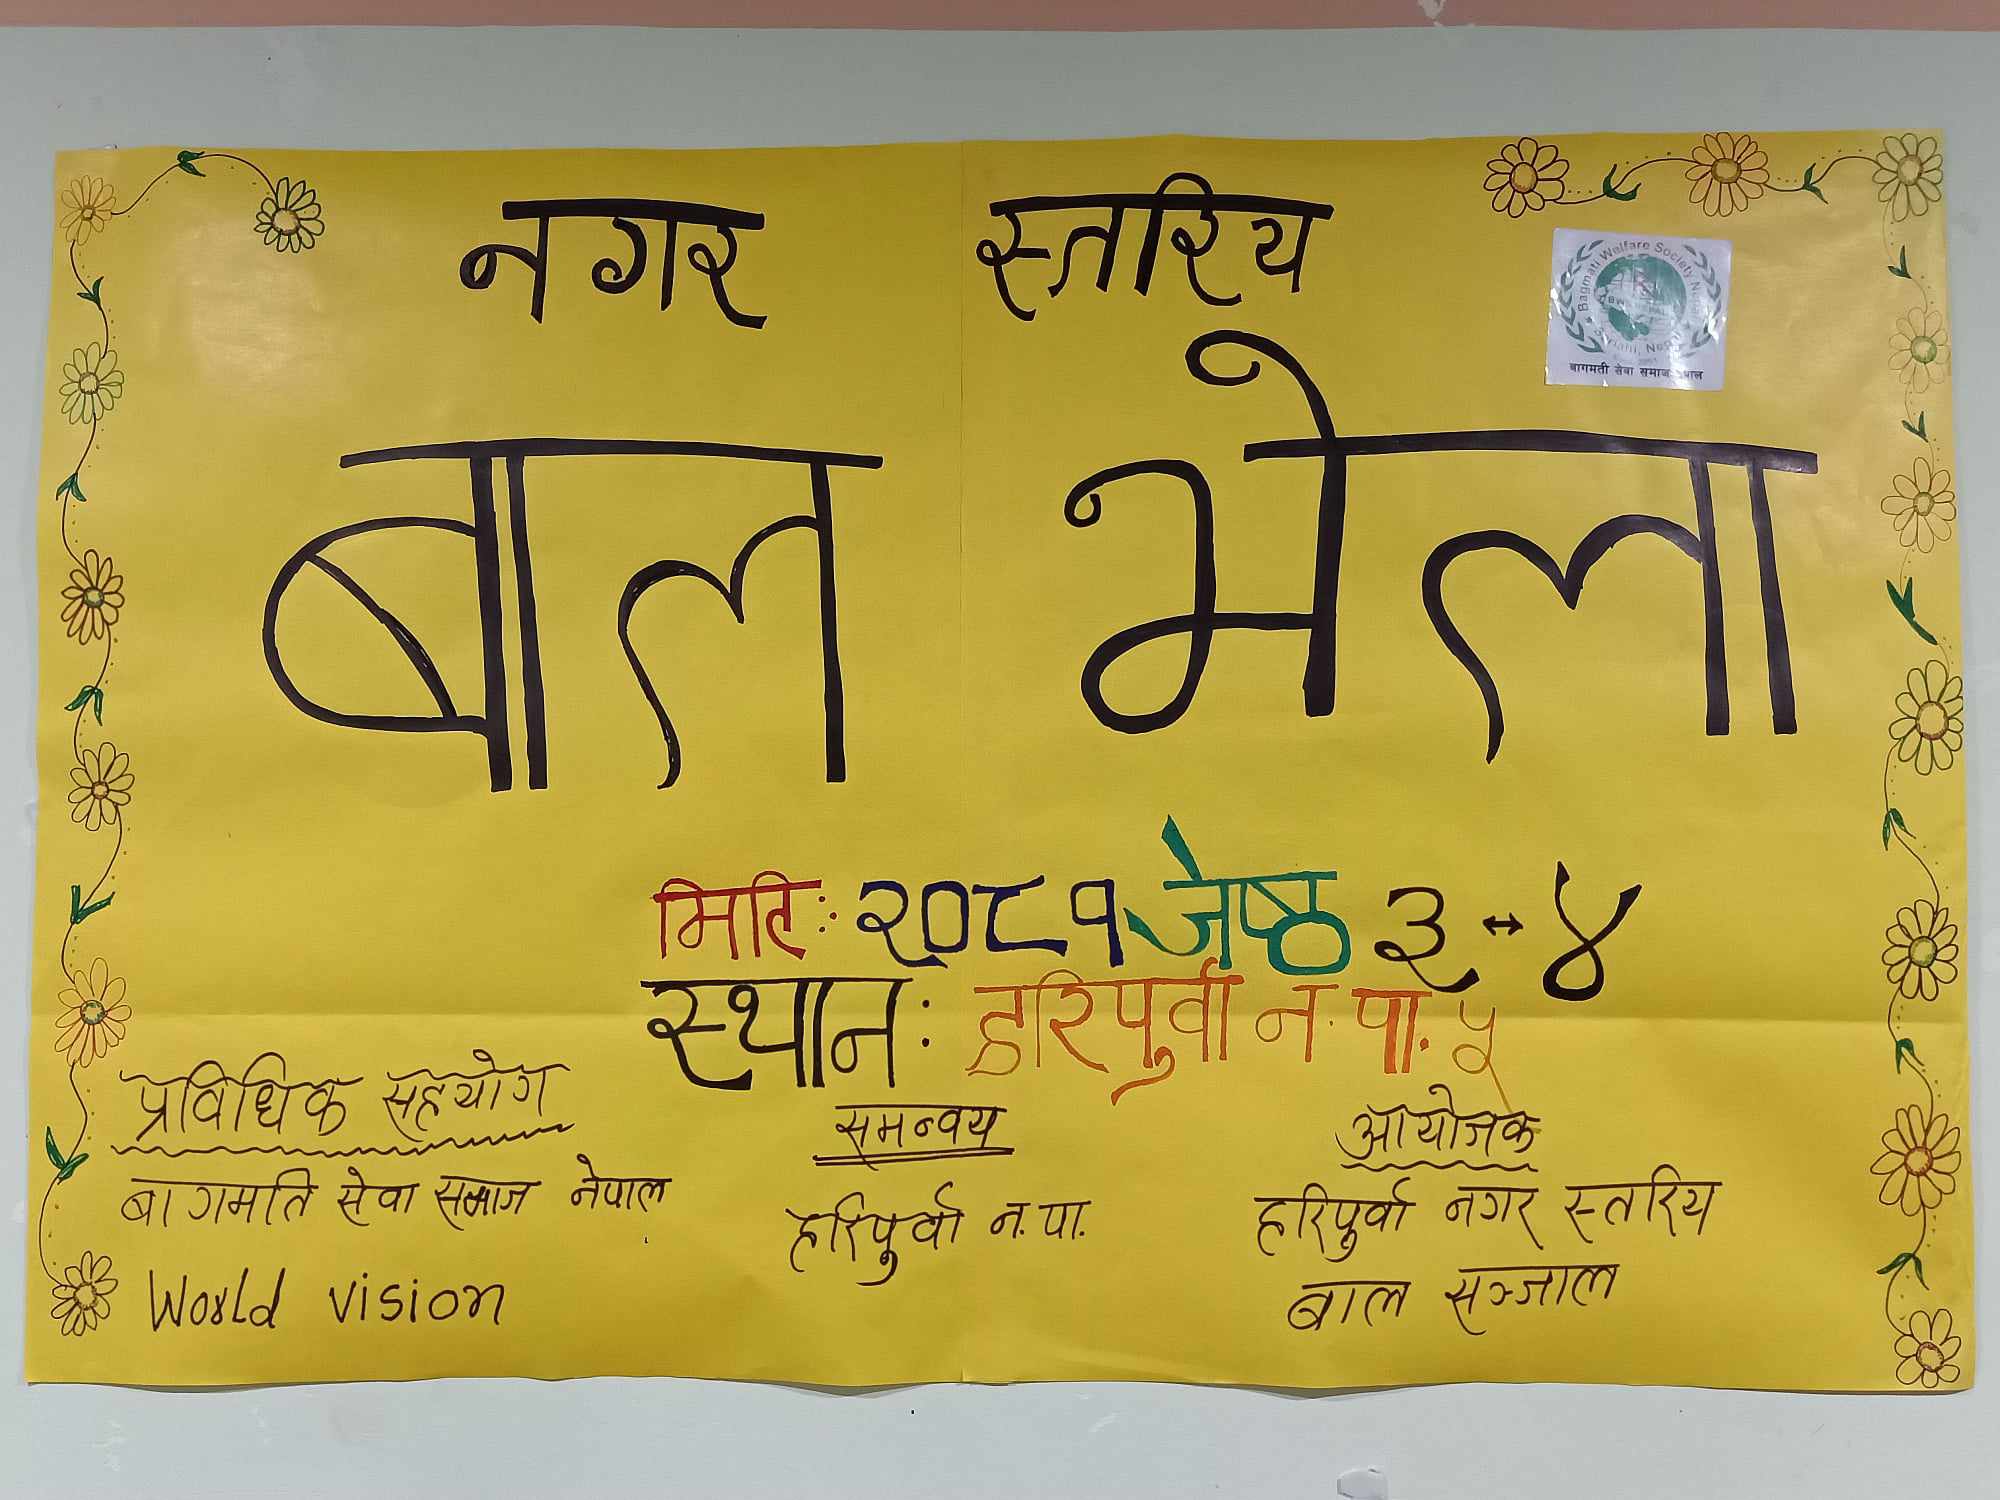 नगर स्तरिय
Bagmati Welfare Society Nepal
Sarlahi, Nepal
बागमती सेवा समाज नेपाल
बाल भेला
मिति: २०८१ जेष्ठ ३ ↔ ४
स्थान: हरिपुर्वा न.पा. ५
प्रविधिक सहयोग
बागमति सेवा समाज नेपाल
World vision
समन्वय
हरिपुर्वा न.पा.
आयोजक
हरिपुर्वा नगर स्तरिय
बाल सञ्जाल